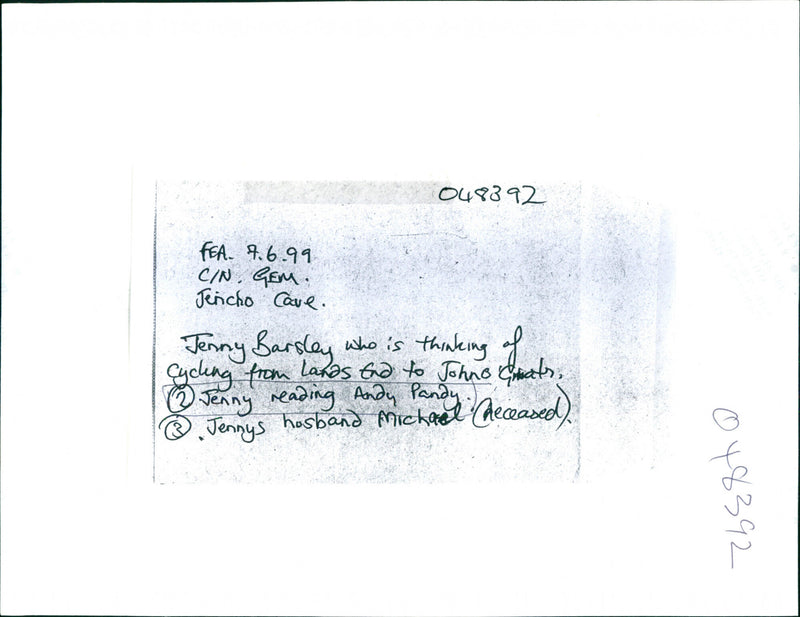 048392
FEA. 7.6.99
C/N. GEM.
Jericho Cave.
Jenny Barsley who is thinking of
Cycling from Lands End to Johno
② Jenny reading Andy Pandy.
③ . Jennys husband Michael (deceased).
048392